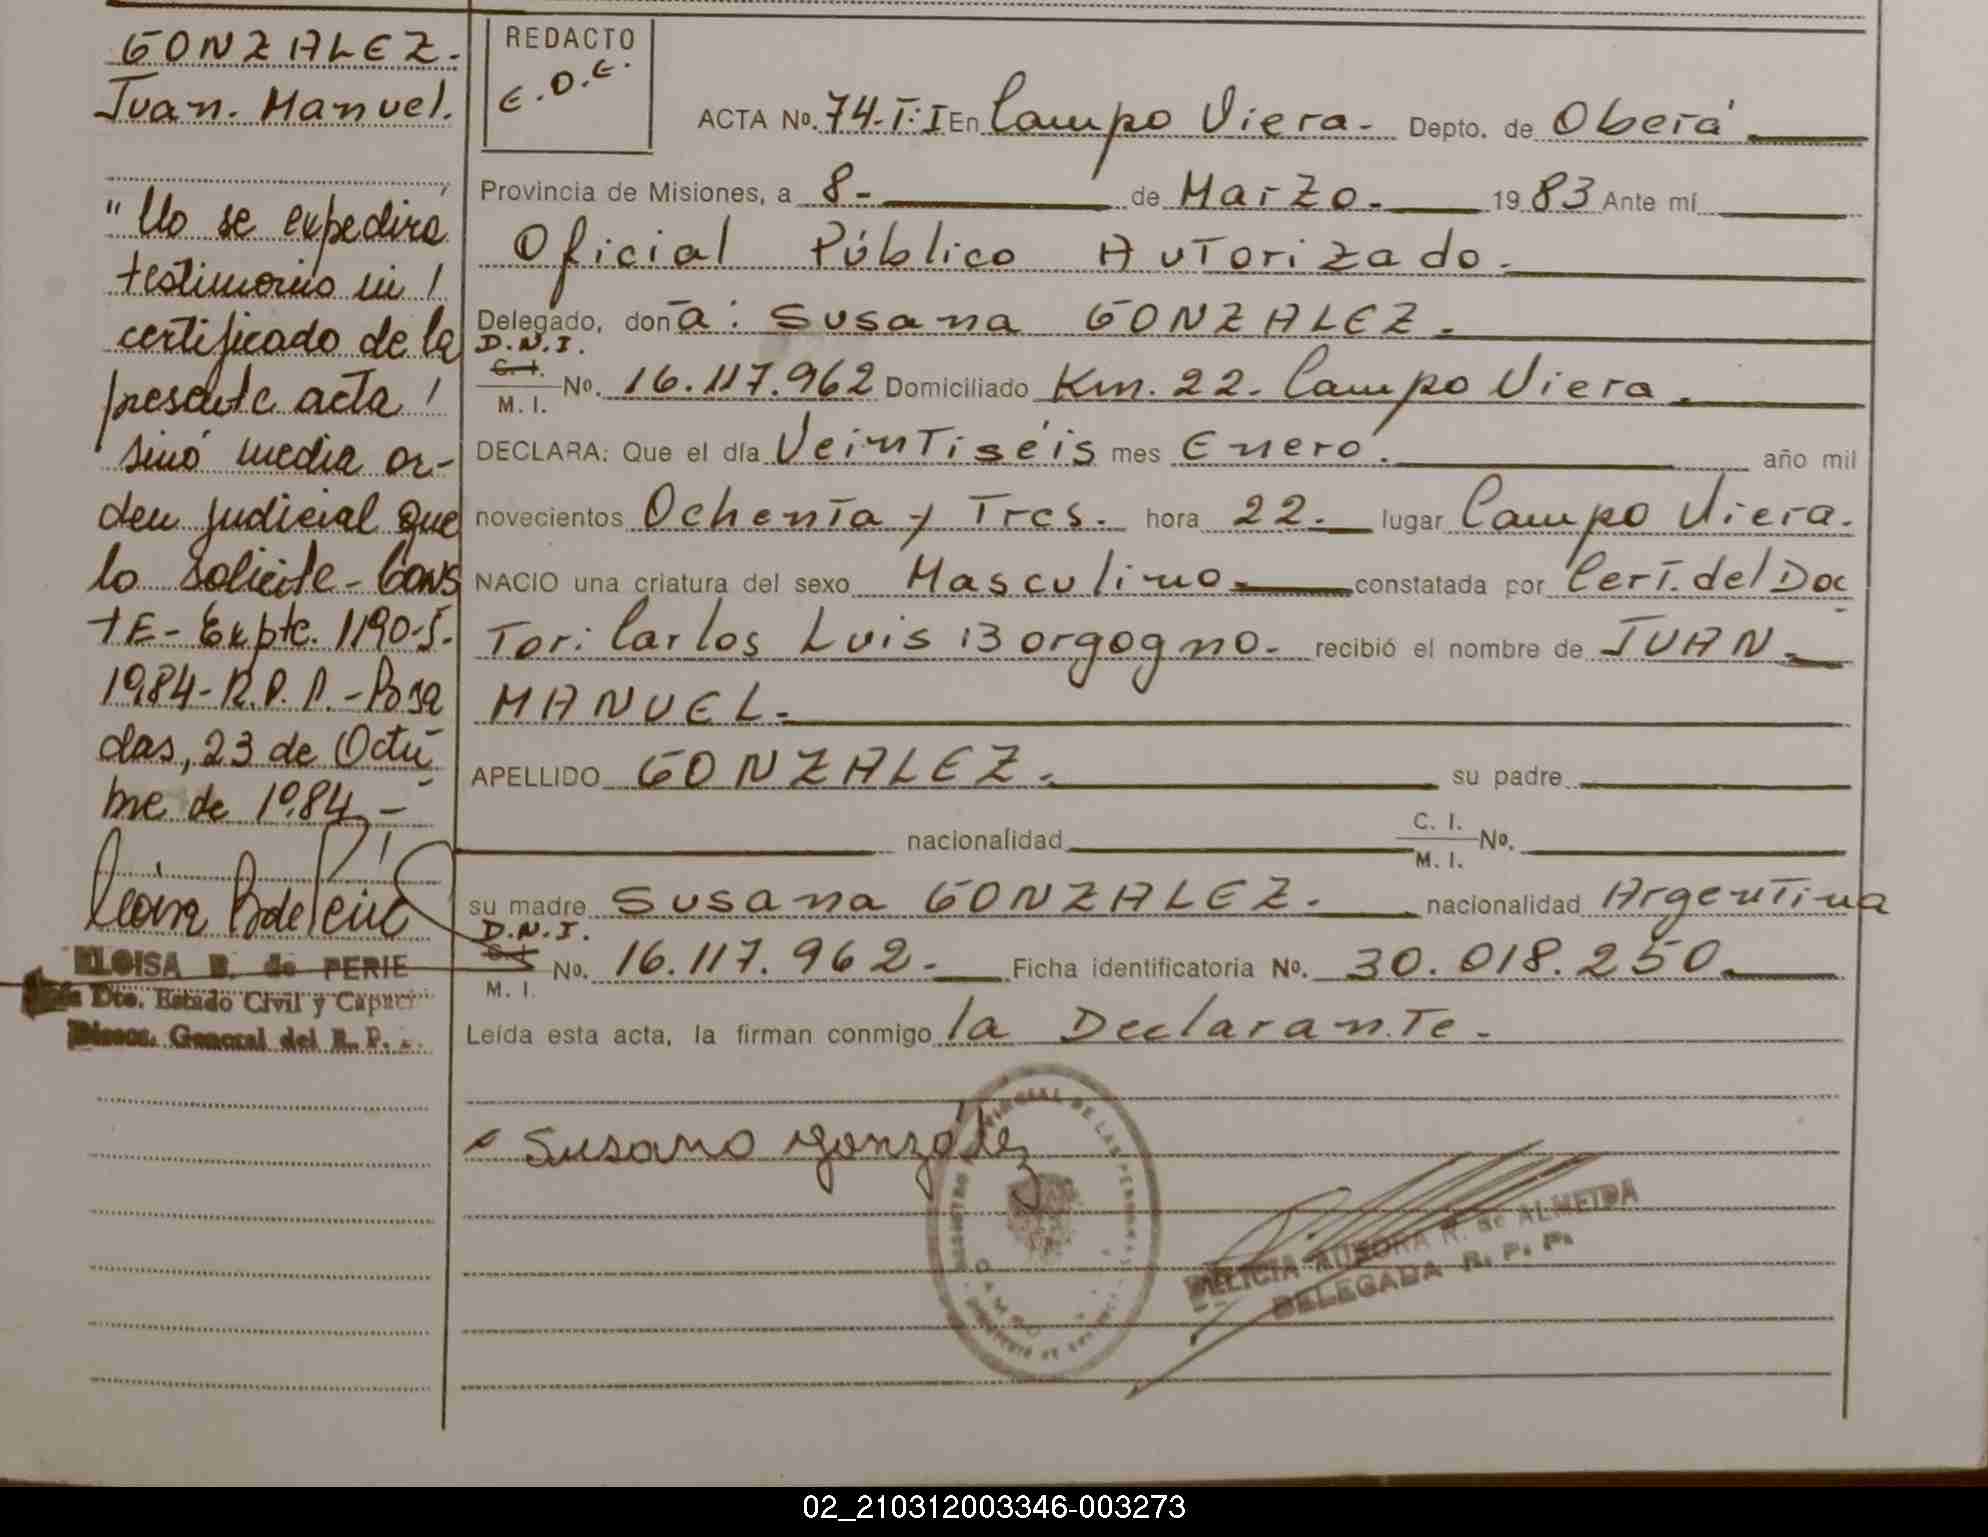 GONZALEZ.
Juan. Manuel.
"No se expedirá
testimonio ni
certificado de la
presente acta
sinó media or-
den judicial que
lo solicite - Cons
te - Expte. 1190-S.
1984 - R.P.P. - Posa
das, 23 de Octu
bre de 1984 -
ELOISA B. de PERIE
Dto. Estado Civil y
General del R. P.
REDACTO
E.D.E.
ACTA Nº. 74-T:I En Campo Viera - Depto. de Oberá
Provincia de Misiones, a 8- de Marzo. 1983 Ante mí
Oficial Público Autorizado.
Delegado, doña: Susana GONZALEZ.
D.N.I.
C. I. Nº. 16.117.962 Domiciliado Km. 22. Campo Viera.
M. I.
DECLARA: Que el día Veintiséis mes Enero. año mil
novecientos Ochenta y Tres. hora 22. lugar Campo Viera.
NACIO una criatura del sexo Masculino. constatada por Cert. del Doc
Tor: Carlos Luis Borgogno. recibió el nombre de JUAN
MANUEL.
APELLIDO GONZALEZ. su padre
nacionalidad C. I. Nº.
M. I.
su madre Susana GONZALEZ. nacionalidad Argentina
D.N.I.
C. I. Nº. 16.117.962. Ficha identificatoria Nº. 30.018.250
M. I.
Leída esta acta, la firman conmigo la Declarante.
Susana González
AURORA R. de ALMEIDA
DELEGADA R. P. P.
02_210312003346-003273